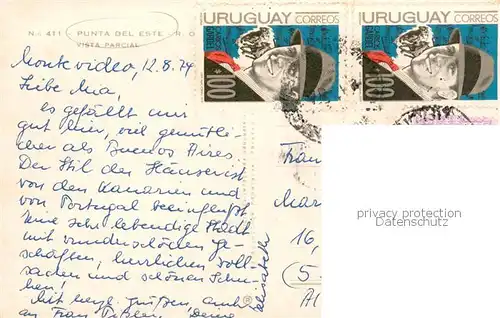 N.º 411 - PUNTA DEL ESTE - R. O
VISTA PARCIAL
URUGUAY CORREOS
100
URUGUAY CORREOS
100
Montevideo, 12.8.74
Liebe Ma,
es gefällt mir
gut hier, viel gemütli-
cher als Buenos Aires.
Der Stil der Häuser ist
von den Kanarien und
von Portugal beeinflußt
eine sehr lebendige Stadt
mit wunderschönen Ge-
schäften, herrlichen Woll-
sachen und schönen Schu-
hen!
Mit herzl. Grüßen, auch
an Frau Deine
Elisabeth
Frau
Mar
16,
5
privacy protection
Datenschutz